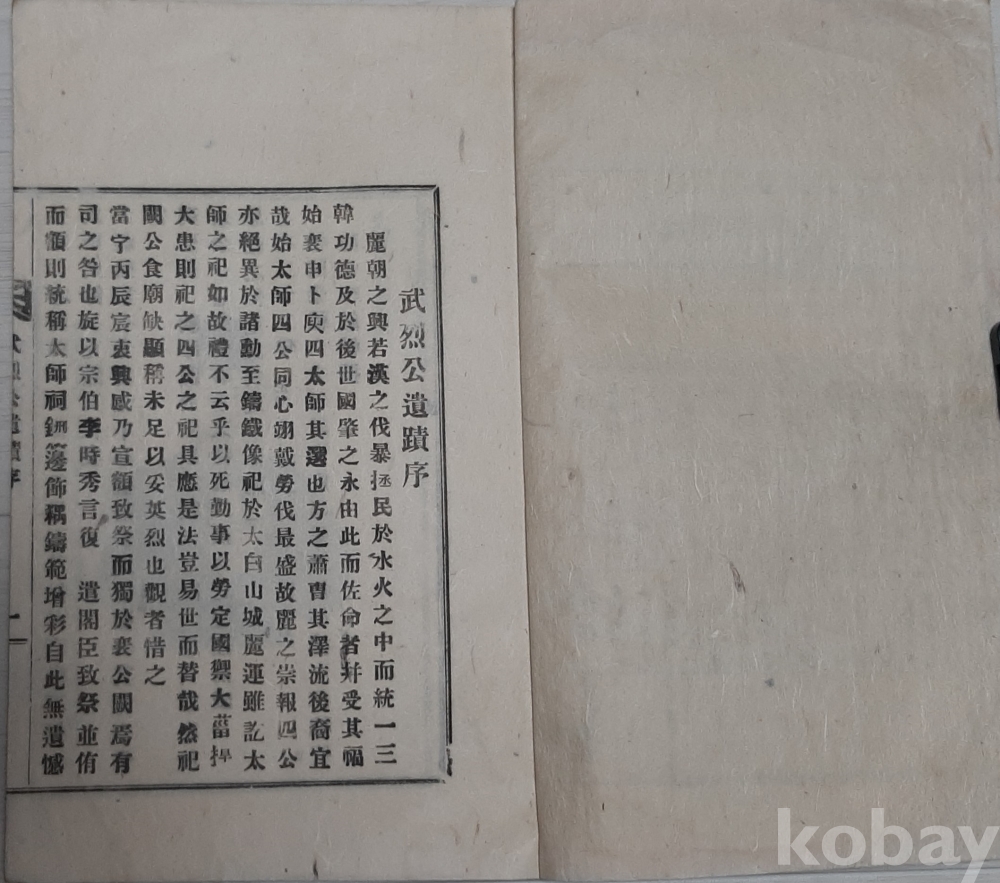 武烈公遺蹟序
麗朝之興若漢之伐暴拯民於水火之中而統一三
韓功德及於後世國肇之永由此而佐命者并受其福
始裵申卜庾四太師其選也方之蕭曺其澤流後裔宜
哉始太師四公同心翊戴勞伐最盛故麗之崇報四公
亦絕異於諸勳至鑄鐵像祀於太白山城麗運雖訖太
師之祀如故禮不云乎以死勤事以勞定國禦大菑捍
大患則祀之四公之祀具應是法豈易世而替哉然祀
閟公食廟缺顯稱未足以妥英烈也觀者惜之
當宁丙辰宸衷興感乃宣額致祭而獨於裵公闕焉有
司之咎也旋以宗伯李時秀言復 遣閣臣致祭並侑
而額則統稱太師祠鉶籩飾稱鑄範增彩自此無遺憾
武烈公遺蹟序
一
kobay